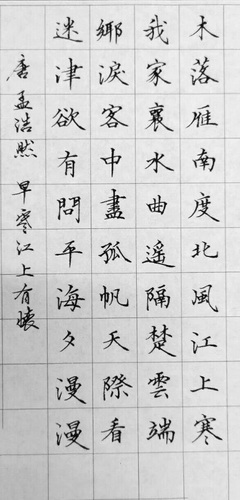 木落雁南度北風江上寒
我家襄水曲遙隔楚雲端
鄉淚客中盡孤帆天際看
迷津欲有問平海夕漫漫
唐孟浩然 早寒江上有懷